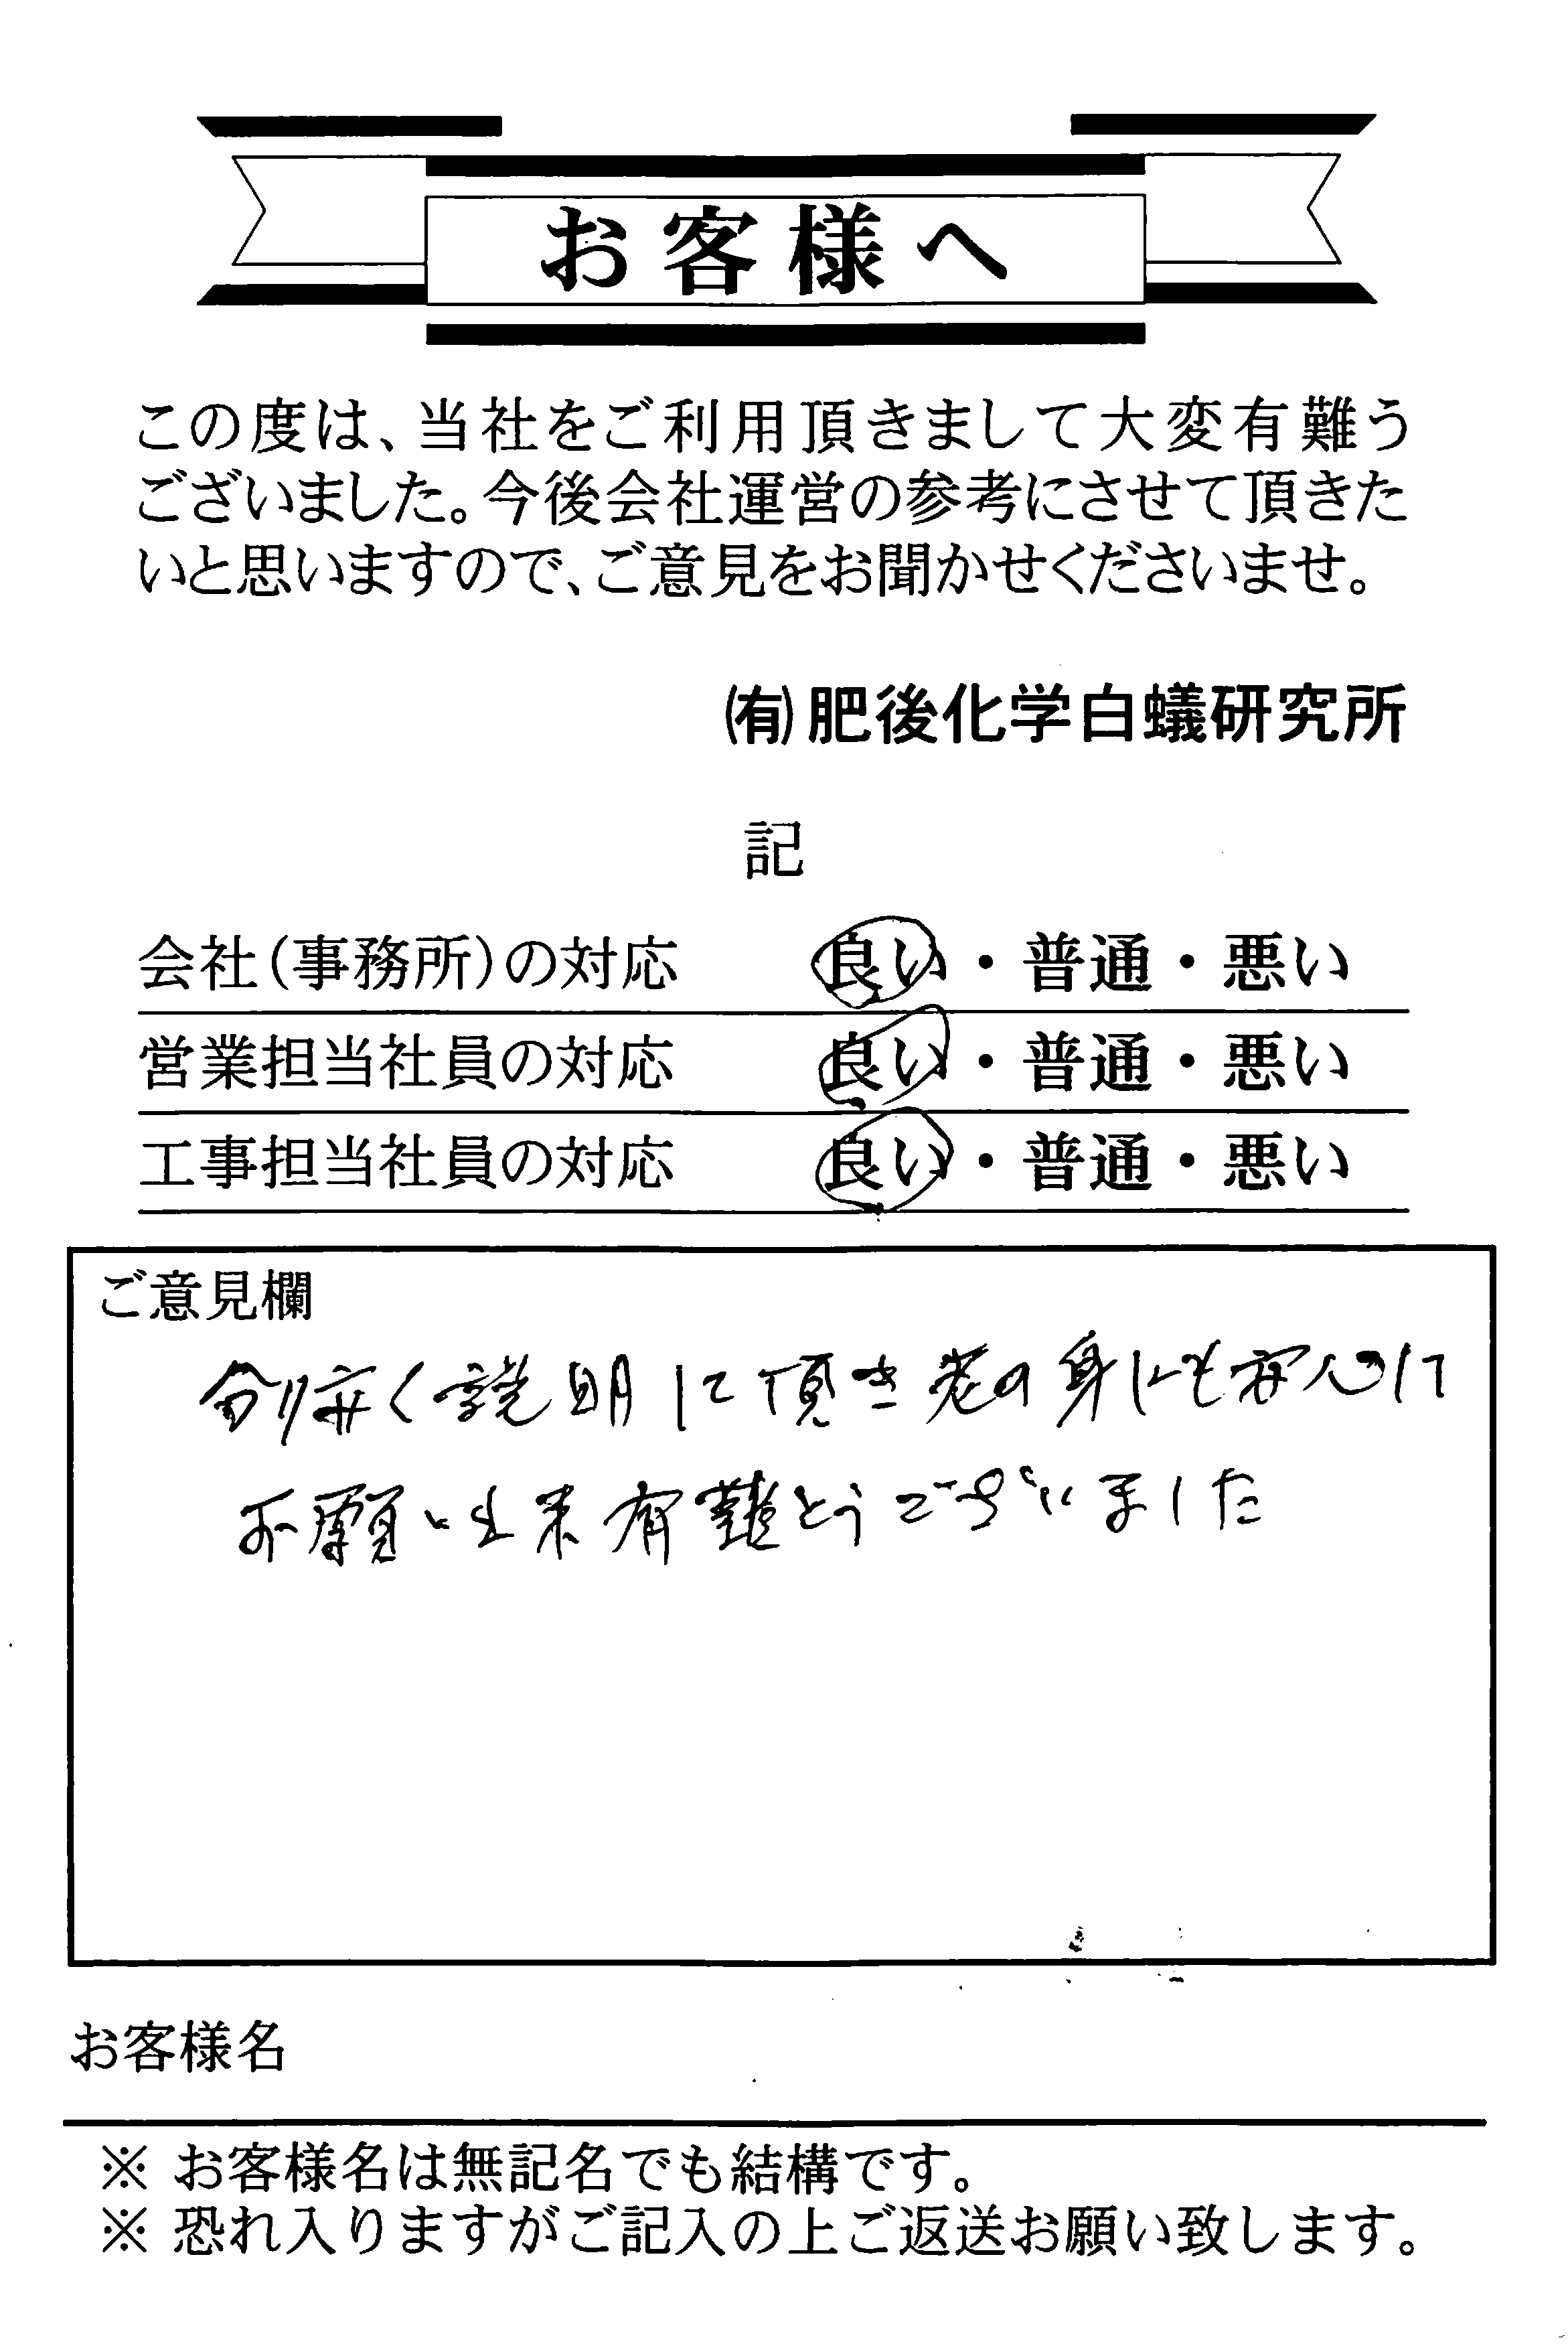 お客様へ
この度は、当社をご利用頂きまして大変有難う
ございました。今後会社運営の参考にさせて頂きた
いと思いますので、ご意見をお聞かせくださいませ。
㈲肥後化学白蟻研究所
記
会社(事務所)の対応 良い・普通・悪い
営業担当社員の対応 良い・普通・悪い
工事担当社員の対応 良い・普通・悪い
ご意見欄
分り安く説明して頂き老の身にも安心して
お願い出来有難とうございました
お客様名
※ お客様名は無記名でも結構です。
※ 恐れ入りますがご記入の上ご返送お願い致します。